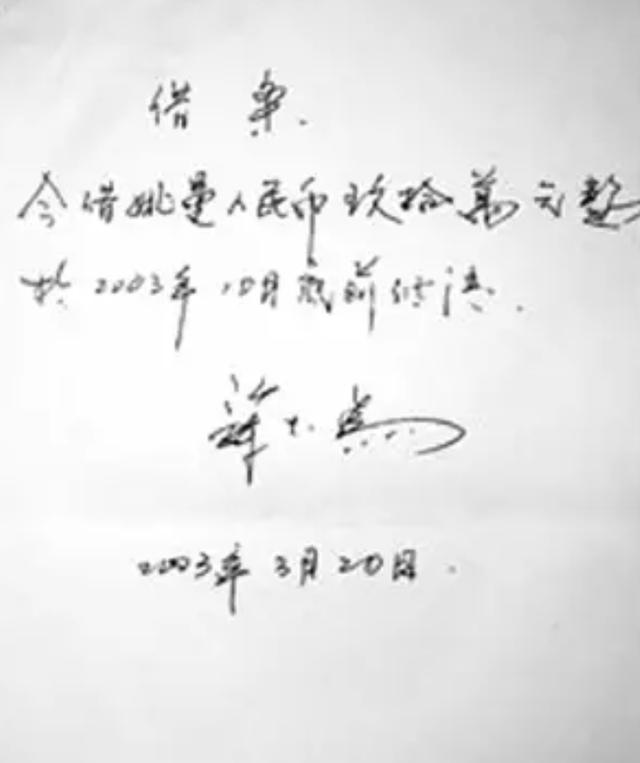 借条.
今借姚曼人民币玖拾萬元整
2003年10月底前付清.
2003年3月20日.